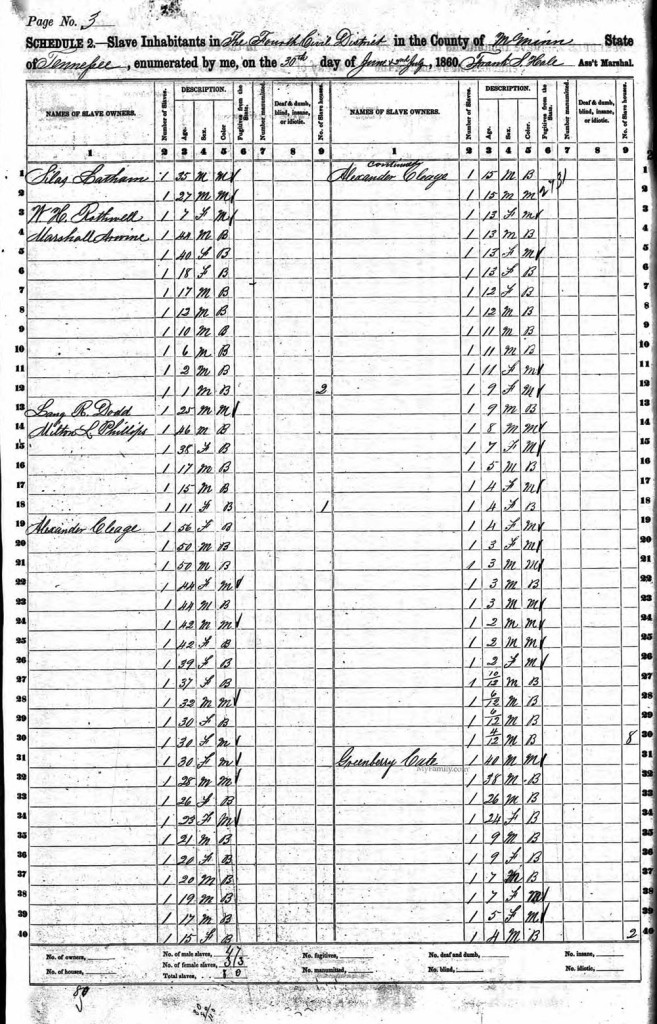 Page No. 3
SCHEDULE 2.—Slave Inhabitants in The Fourth Civil District in the County of McMinn State
of Tennessee, enumerated by me, on the 30th day of June & 2nd July, 1860. Frank S Hale Ass't Marshal.
NAMES OF SLAVE OWNERS. Number of Slaves. DESCRIPTION. Age. Sex. Color. Fugitives from the State. Number manumitted. Deaf & dumb, blind, insane, or idiotic. No. of Slave houses. NAMES OF SLAVE OWNERS. Number of Slaves. DESCRIPTION. Age. Sex. Color. Fugitives from the State. Number manumitted. Deaf & dumb, blind, insane, or idiotic. No. of Slave houses.
1 2 3 4 5 6 7 8 9 1 2 3 4 5 6 7 8 9
1 Silas Latham 1 35 M M Alexander Cleage continued 1 15 M B 1
2 1 27 M M 1 15 M M 2
3 W. H. Rothwell 1 7 F M 1 13 F M 3
4 Marshall 1 44 M B 1 13 M B 4
5 1 40 F B 1 13 F M 5
6 1 18 F B 1 13 F B 6
7 1 17 M B 1 12 F B 7
8 1 12 M B 1 12 M B 8
9 1 10 M B 1 11 M B 9
10 1 6 M B 1 11 M B 10
11 1 2 M B 1 11 F M 11
12 1 1 M B 2 1 9 F M 12
13 R. Dodd 1 25 M M 1 9 M B 13
14 Milton L. Phillips 1 46 M B 1 8 M M 14
15 1 38 F B 1 7 F M 15
16 1 17 M B 1 5 M B 16
17 1 15 M B 1 4 F M 17
18 1 11 F B 1 1 4 F B 18
19 Alexander Cleage 1 56 F B 1 4 F M 19
20 1 50 M B 1 3 F M 20
21 1 50 M B 1 3 M M 21
22 1 44 F M 1 3 M B 22
23 1 44 M B 1 3 M M 23
24 1 42 M M 1 2 M M 24
25 1 42 F B 1 2 M M 25
26 1 39 F B 1 2 F M 26
27 1 37 F B 1 10/12 M B 27
28 1 32 M M 1 6/12 M B 28
29 1 30 F B 1 6/12 M B 29
30 1 30 F M 1 4/12 M B 8 30
31 1 30 F M Greenberry Cate 1 40 M M 31
32 1 28 M M 1 38 M B 32
33 1 26 F B 1 26 M B 33
34 1 23 F M 1 24 F B 34
35 1 21 M B 1 9 M B 35
36 1 20 F B 1 9 F B 36
37 1 20 M B 1 7 M B 37
38 1 19 M B 1 7 F M 38
39 1 17 M B 1 5 F M 39
40 1 15 F B 1 4 M B 2 40
MyFamily.com
No. of owners, No. of male slaves, 47 No. fugitives, No. deaf and dumb, No. insane,
No. of houses, No. of female slaves, 33 No. manumitted, No. blind, No. idiotic,
Total slaves, 80
80